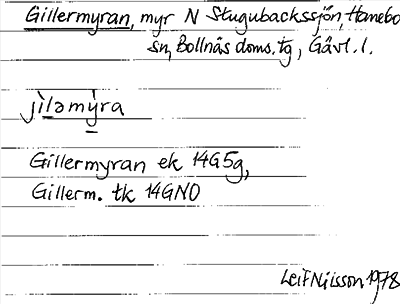 Gillermyran, myr N Stugubackssjön, Hanebo
sn, Bollnäs doms. tg, Gävl. l.
jìləmỳra
Gillermyran ek 14G5g,
Gillerm. tk 14GNO
Leif Nilsson 1978